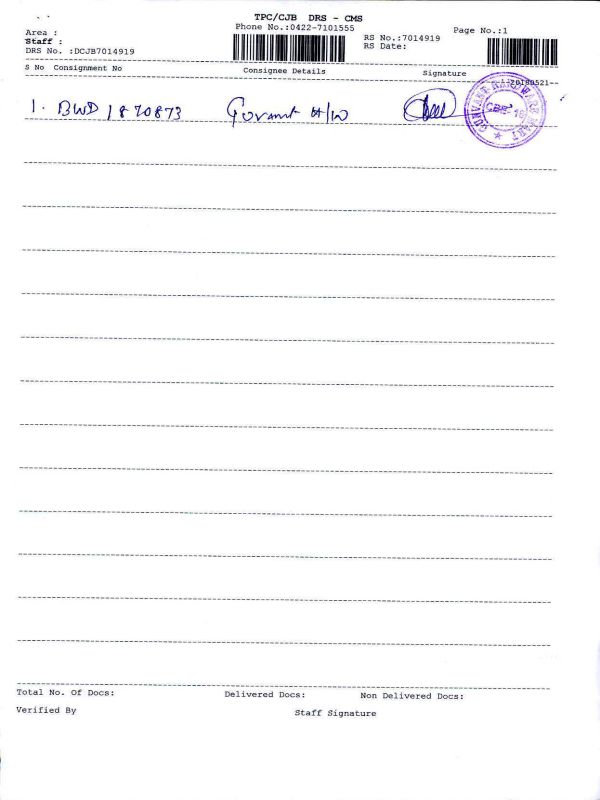 TPC/CJB DRS - CMS
Phone No.:0422-7101555
Page No.:1
Area :
Staff :
DRS No. :DCJB7014919
RS No.:7014919
RS Date:
S No Consignment No Consignee Details Signature
--20180521--
1. BWD 1870873 H/W
Total No. Of Docs: Delivered Docs: Non Delivered Docs:
Verified By Staff Signature